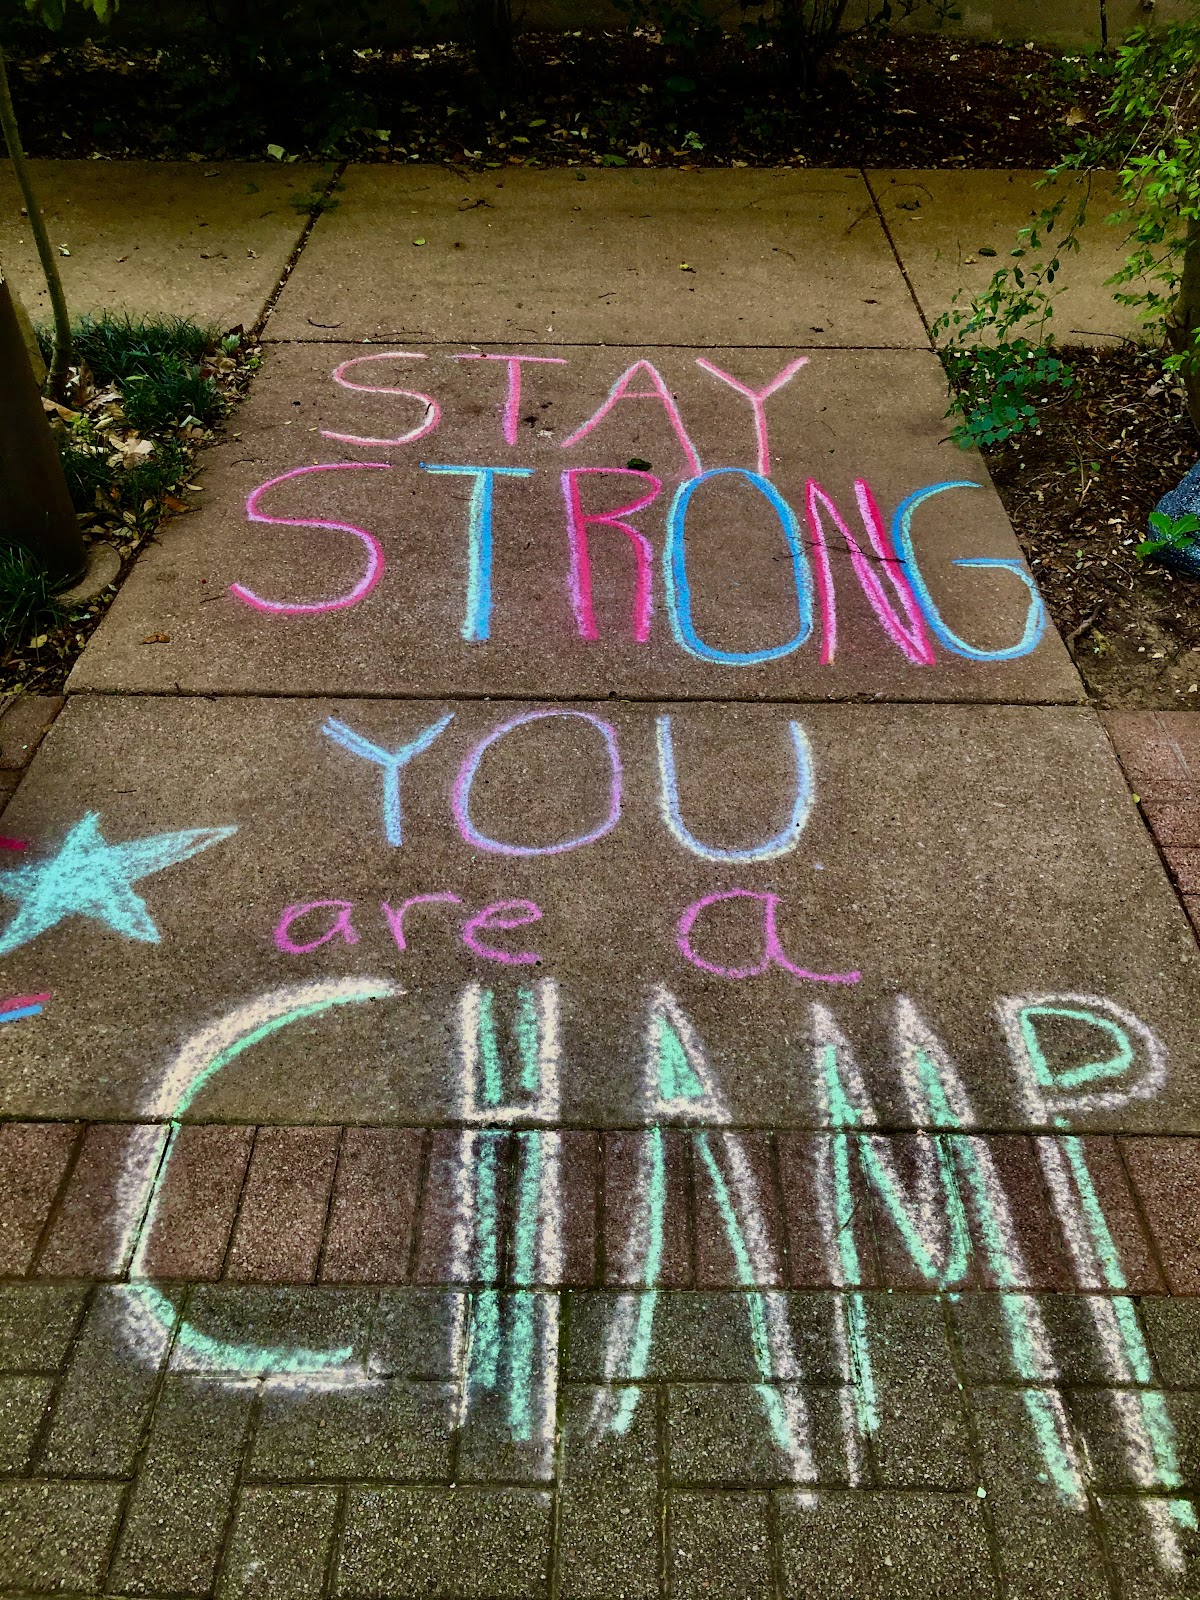 STAY
STRONG
YOU
are a
CHAMP